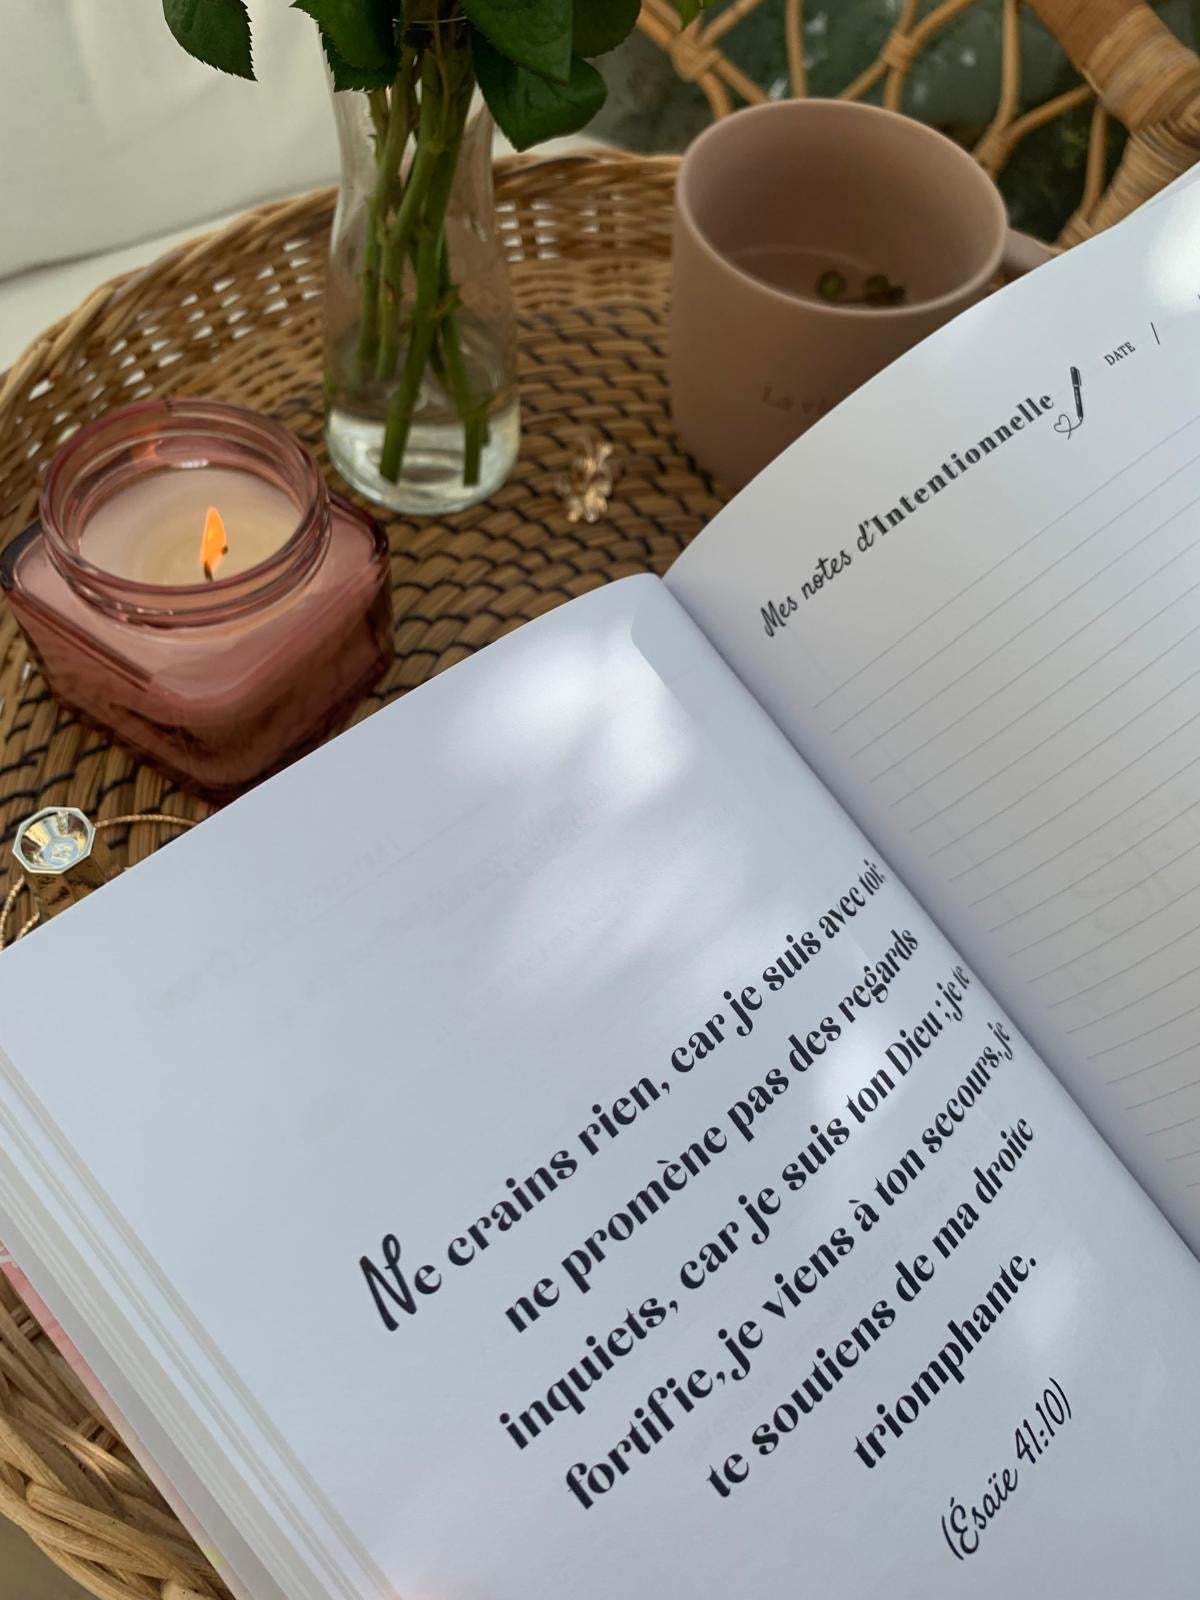 Mes notes d'Intentionnelle
DATE /
Ne crains rien, car je suis avec toi;
ne promène pas des regards
inquiets, car je suis ton Dieu ; je te
fortifie, je viens à ton secours, je
te soutiens de ma droite
triomphante.
(Ésaïe 41:10)